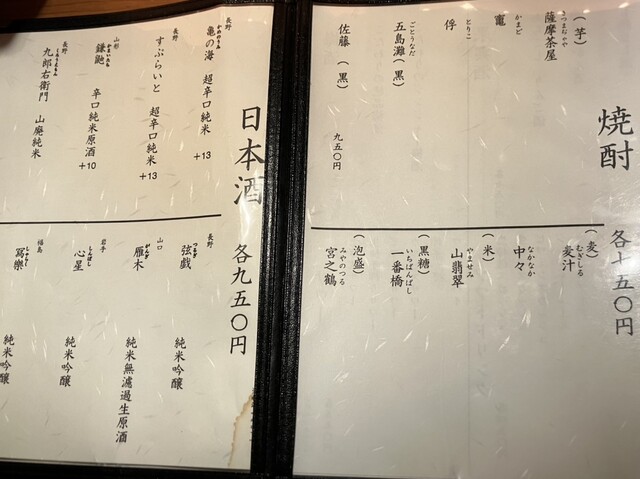 焼酎 各七五〇円
(芋)
さつまちゃや
薩摩茶屋
かまど
竈
とりこ
俘
ごとうなだ
五島灘(黒)
佐藤(黒) 九五〇円
(麦)
むぎしる
麦汁
なかなか
中々
(米)
やませみ
山翡翠
(黒糖)
いちばんばし
一番橋
(泡盛)
みやのつる
宮之鶴
日本酒 各九五〇円
長野
かめのうみ
亀の海 超辛口純米 +13
長野
すぷらいと 超辛口純米 +13
山形
かまいたち
鎌鼬 辛口純米原酒 +10
長野
くろうえもん
九郎右衛門 山廃純米
長野
つるぎ
弦戯 純米吟醸
山口
がんぎ
雁木 純米無濾過生原酒
岩手
しんぼし
心星 純米吟醸
福島
しゃらく
冩樂 純米吟醸